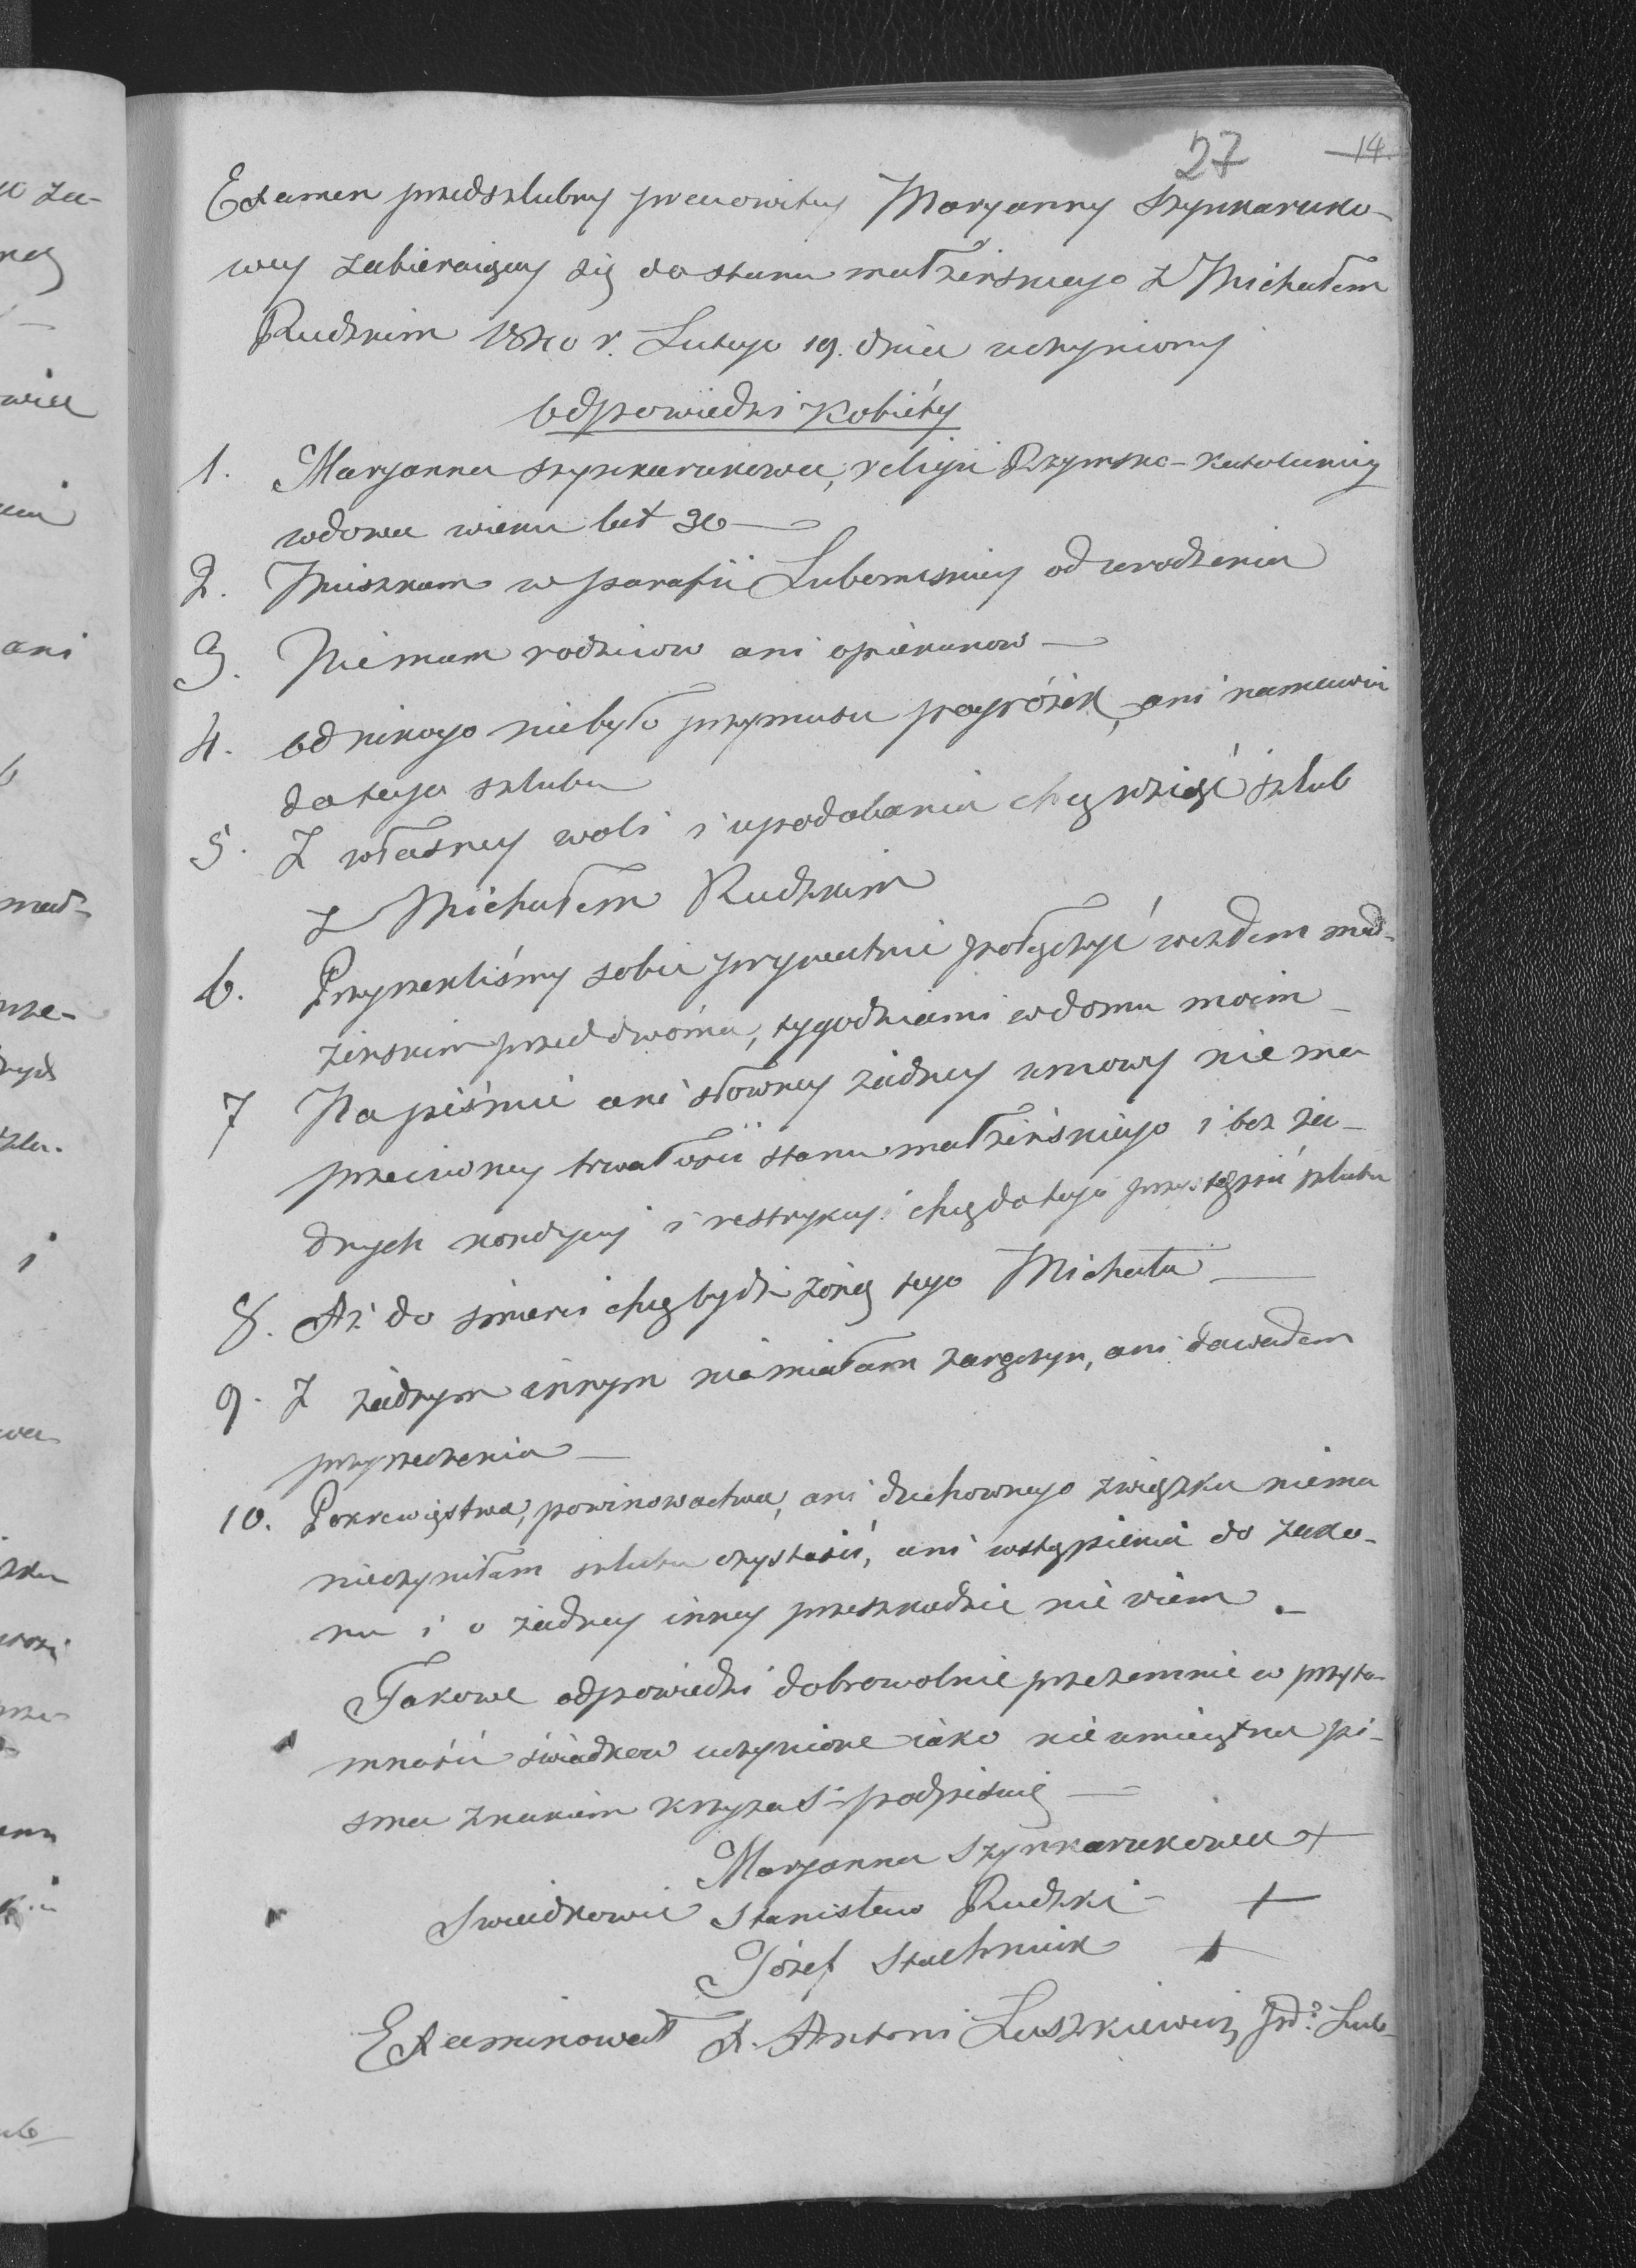 27 14.
Examen przedszlubny pracowitey Maryanny Szynkaruko-
wey zabieraiącey się do stanu małżenskiego z Michałem
Rudzkim 1840 r. Lutego 19. dnia uczyniony
Odpowiedzi Kobiéty
1. Maryanna Szynkarukowa, religii Rzymsko-Katolickiey
wdowa wieku lat 30
2. Mieszkam w parafii Lubomskiey od urodzenia
3. Niemam rodzicow ani opiekunow
4. Od nikogo niebyło przymusu pogróżek, ani namowin
do tego szlubu
5. Z własney woli i upodobania chcę wziąść szlub
z Michałem Rudzkim
6. Przyrzekliśmy sobie prywatnie połączyć węzłem mał-
żenskim przed dwóma, tygodniami w domu moim
7 Na piśmie ani słowney żadney umowy nie ma
przeciwney trwałości stanu małżeńskiego i bez ża-
dnych kondycyi i restrykcyi chcę do tego przystąpić szlubu
8. Aż do smierci chcę bydź żoną tego Michała
9. Z żadnym innym niemiałam zaręczyn, ani dawałam
przyrzeczenia
10. Pokrewięstwa, powinowactwa, ani duchownego związku niema
nieczyniłam szlubu czystości, ani wstąpienia do zako-
nu i o żadney inney przeszkodzie nie wiem.
Takowe odpowiedzi dobrowolnie przezemnie w przyto-
mności świadkow uczynione iako nieumieiętna pi-
sma znakiem krzyża S. podpisuię
Maryanna Szynkarukowa +
Swiadkowie Stanisław Rudzki +
Józef Stachniuk +
Examinował X. Antoni Luszkiewicz Lub